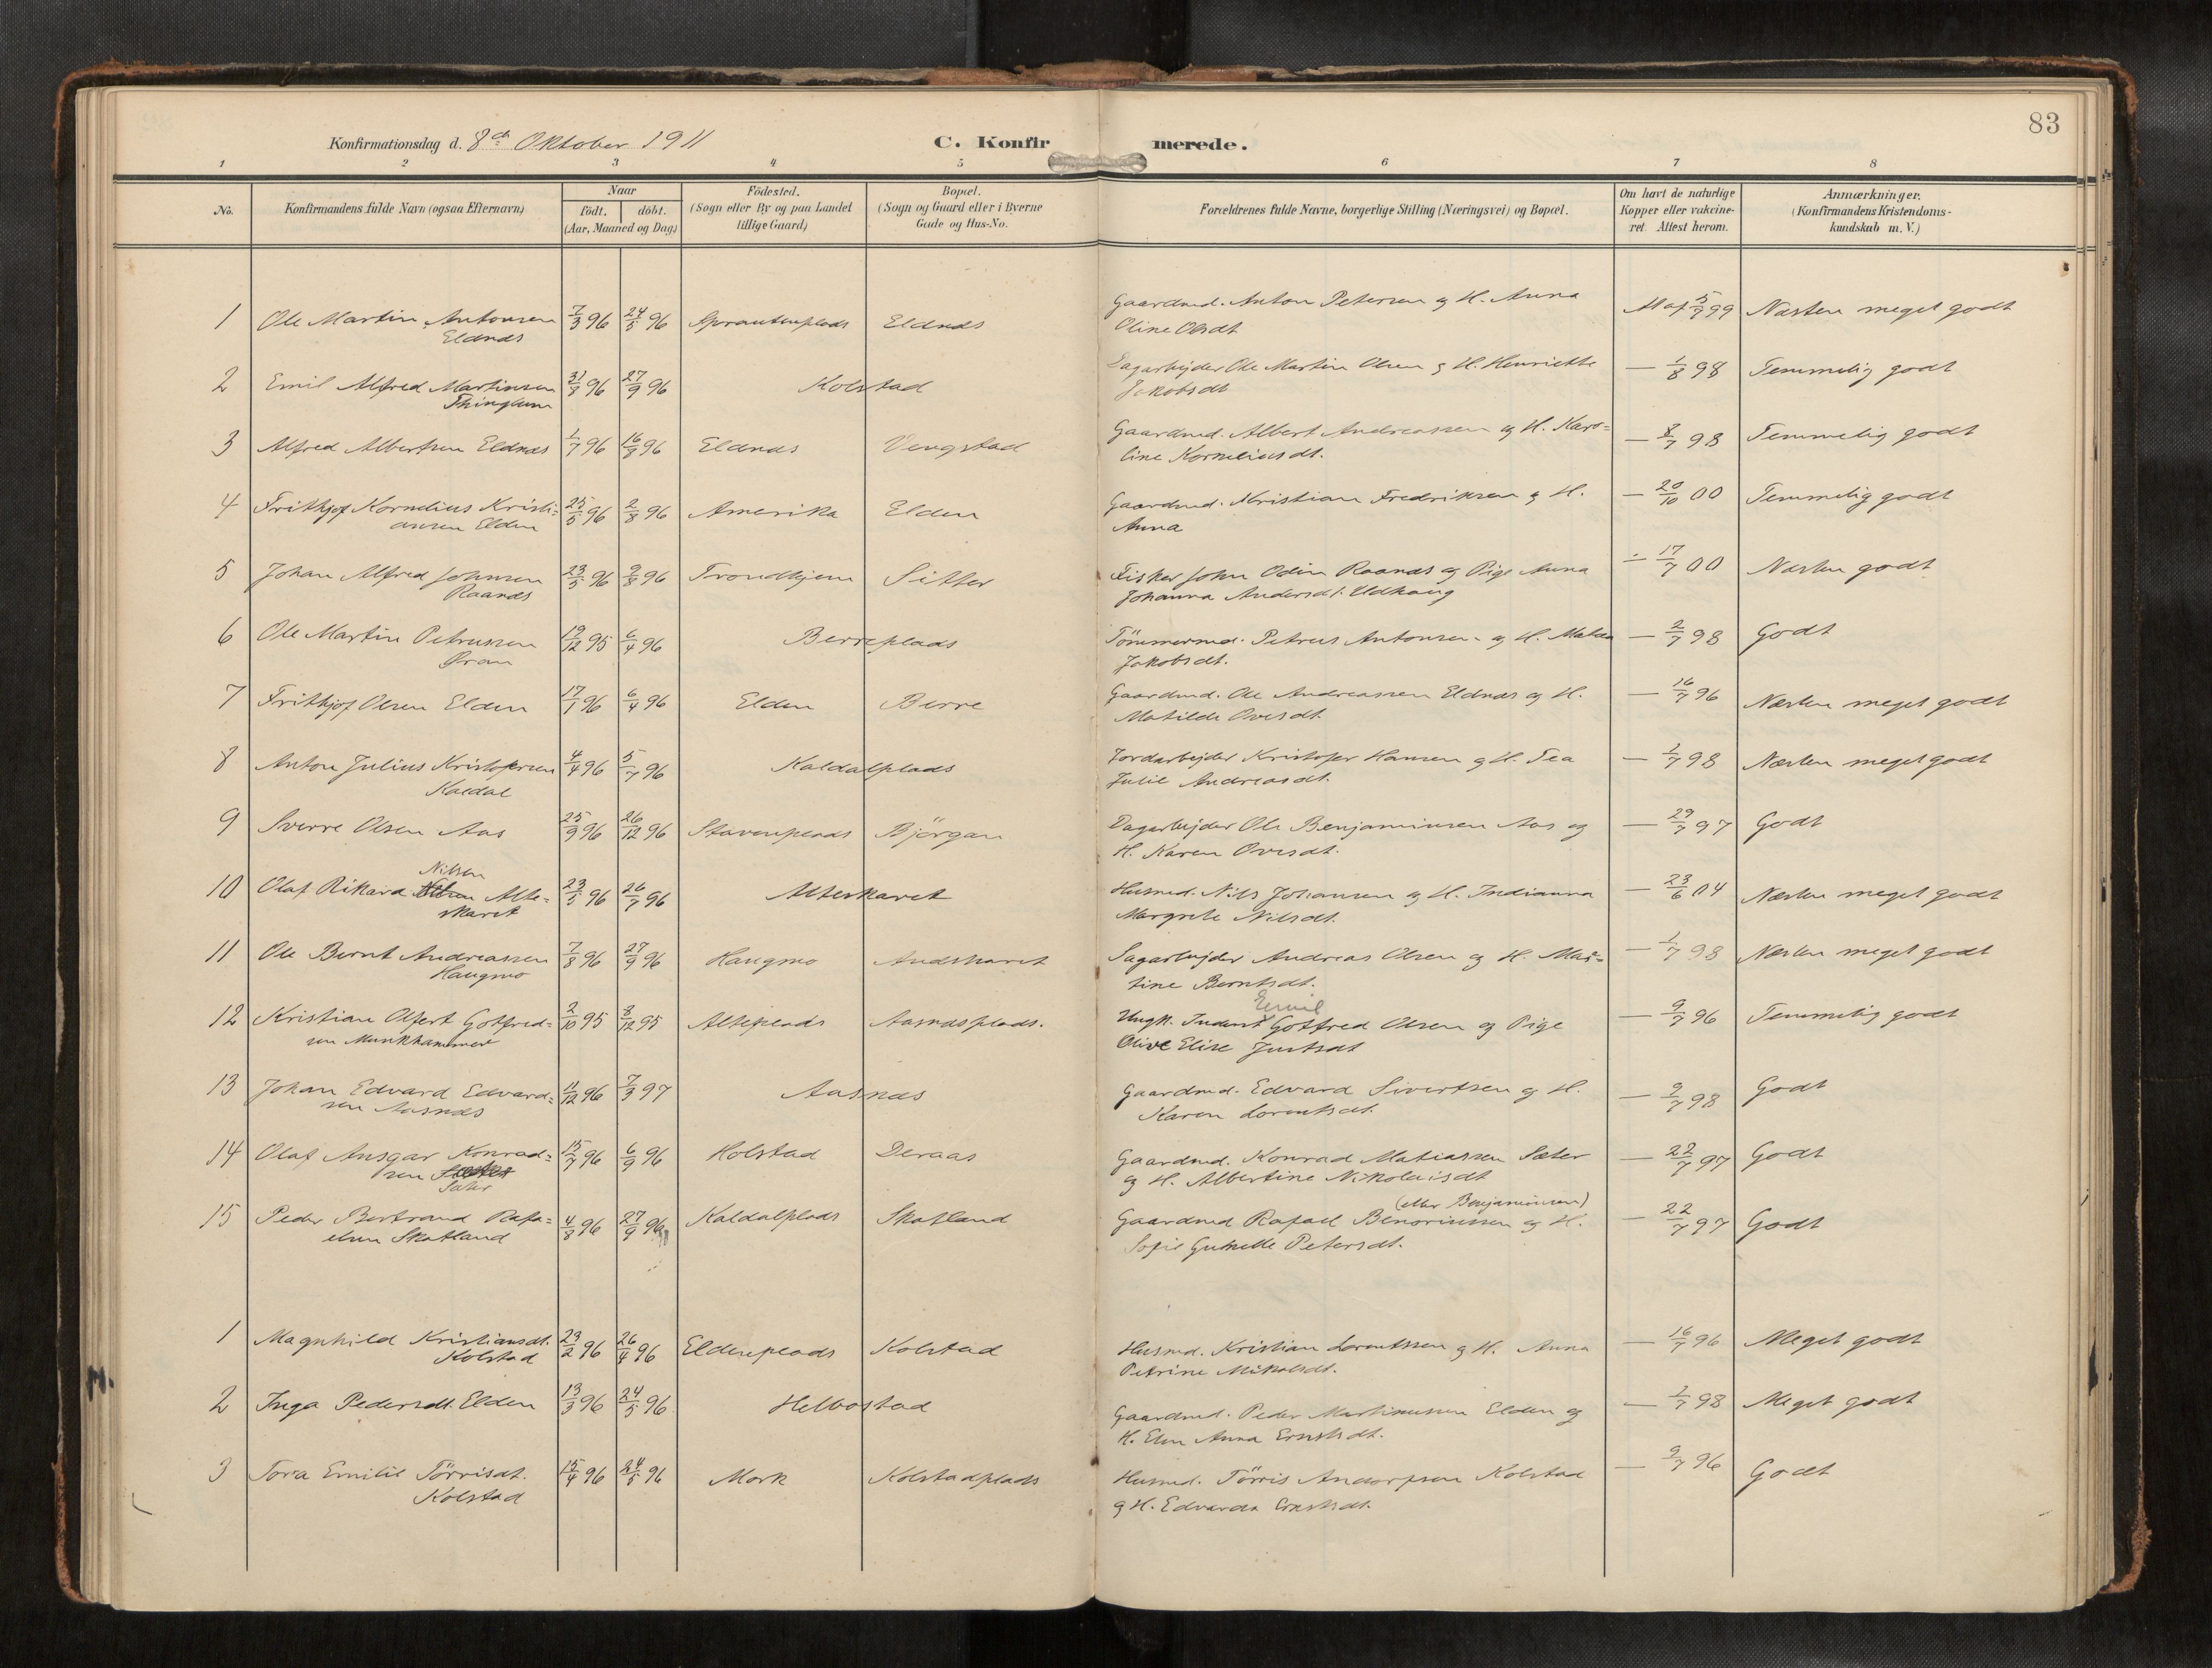 83
Konfirmationsdag d. 8de Oktober 1911 C. Konfirmerede.
1 2 3 4 5 6 7 8
No. Konfirmandens fulde Navn (ogsaa Efternavn) Naar födt, döbt. (Aar, Maaned og Dag) Födested. (Sogn eller By og paa Landet tillige Gaard) Bopæl. (Sogn og Gaard eller i Byerne Gade og Hus-No. Forældrenes fulde Navne, borgerlige Stilling (Næringsvei) og Bopæl. Om havt de naturlige Kopper eller vakcineret. Attest herom. Anmærkninger. (Konfirmandens Kristendomskundskab m. V.)
1 Ole Martin Antonsen 7/3 96 24/5 96 Eldnæs Gaardmd. Anton Petersen og H. Anna 5/7 99 Næsten meget godt
Eldnæs Oline Olsdt
2 Emil Alfred Martinsen 31/8 96 27/9 96 Kolstad Sagarbejder Ole Martin Olsen og H. Henriette — 1/8 98 Temmelig godt
Jakobsdt
3 Alfred Albertsen Eldnæs 1/7 96 16/8 96 Eldnæs Vengstad Gaardmd. Albert Andreassen og H. Karo= — 8/7 98 Temmelig godt
line Korneliusdt.
4 Frithjof Kornelius Kristi= 25/5 96 2/8 96 Amerika Elden Gaardmd. Kristian Fredriksen og H. — 20/10 00 Temmelig godt
ansen Elden Anna
5 Johan Alfred Johnsen 23/5 96 9/8 96 Trondhjem Sitter Fisker John Odin Raanæs og Pige Anna — 17/7 00 Næsten godt
Raanæs Johanna Andersdt. Udhaug
6 Ole Martin Petrussen 19/12 95 6/4 96 Berreplads Tömmermd. Petrus Antonsen og H. — 2/7 98 Godt
Øran Jakobsdt.
7 Frithjof Olsen Elden 17/1 96 6/4 96 Elden Berre Gaardmd. Ole Andreassen Eldnæs og H. — 16/7 96 Næsten meget godt
Matilde Ovesdt.
8 Anton Julius Kristofersen 4/4 96 5/7 96 Kaldalplads Jordarbejder Kristofer Hansen og H. Tea — 1/7 98 Næsten meget godt
Kaldal Julie Andreasdt.
9 Sverre Olsen Aas 25/9 96 26/12 96 Stavenplads Björgan Dagarbejder Ole Benjaminsen Aas og — 29/7 97 Godt
H. Karen Ovesdt.
Nilsen
10 Olaf Rikard Alte= 23/5 96 26/7 96 Alteskaret Husmd. Nils Johansen og H. Indianna — 23/6 04 Næsten meget godt
skaret Margrete Nilsdt.
11 Ole Bernt Andreassen 7/8 96 27/9 96 Haugmo Andskaret Sagarbejder Andreas Olsen og H. Mar= — 1/7 98 Næsten meget godt
Haugmo tine Berntsdt.
Emil
12 Kristian Olfert Gotfred= 2/10 95 8/12 95 Alteplads Aasnæsplads. Ungk. Gotfred Olsen og Pige — 9/7 96 Temmelig godt
sen Munkhammer Olive Elise Justsdt
13 Johan Edvard Edvard= 11/12 96 7/3 97 Aasnæs Gaardmd. Edvard Sivertsen og H. — 9/7 98 Godt
sen Aasnæs Karen Lorentsdt.
14 Olaf Ansgar Konrad= 15/7 96 6/9 96 Holstad Deraas Gaardmd. Konrad Matiassen Sæter — 22/7 97 Godt
sen og H. Albertine Nikolaisdt
Sæter
(eller Benjaminsen)
15 Peder Bertrand Rafa= 4/8 96 27/9 96 Kaldalplads Skatland Gaardmd Rafael Benoniussen og H. — 22/7 97 Godt
elsen Skatland Sofie Petersdt.
1 Magnhild Kristiansdt. 23/2 96 26/4 96 Eldenplads Kolstad Husmd. Kristian Lorentssen og H. Anna — 16/7 96 Meget godt
Kolstad Petrine Mikalsdt.
2 Inga Pedersdt. Elden 13/3 96 24/5 96 Helbostad Gaardmd. Peder Martinussen Elden og — 1/7 98 Meget godt
H. Elen Anna Ernstsdt.
3 Tora Emilie Törrisdt. 15/4 96 24/5 96 Mork Kolstadplads Husmd. Törris Kolstad — 9/7 96 Godt
Kolstad og H. Edvarda Ernstsdt.